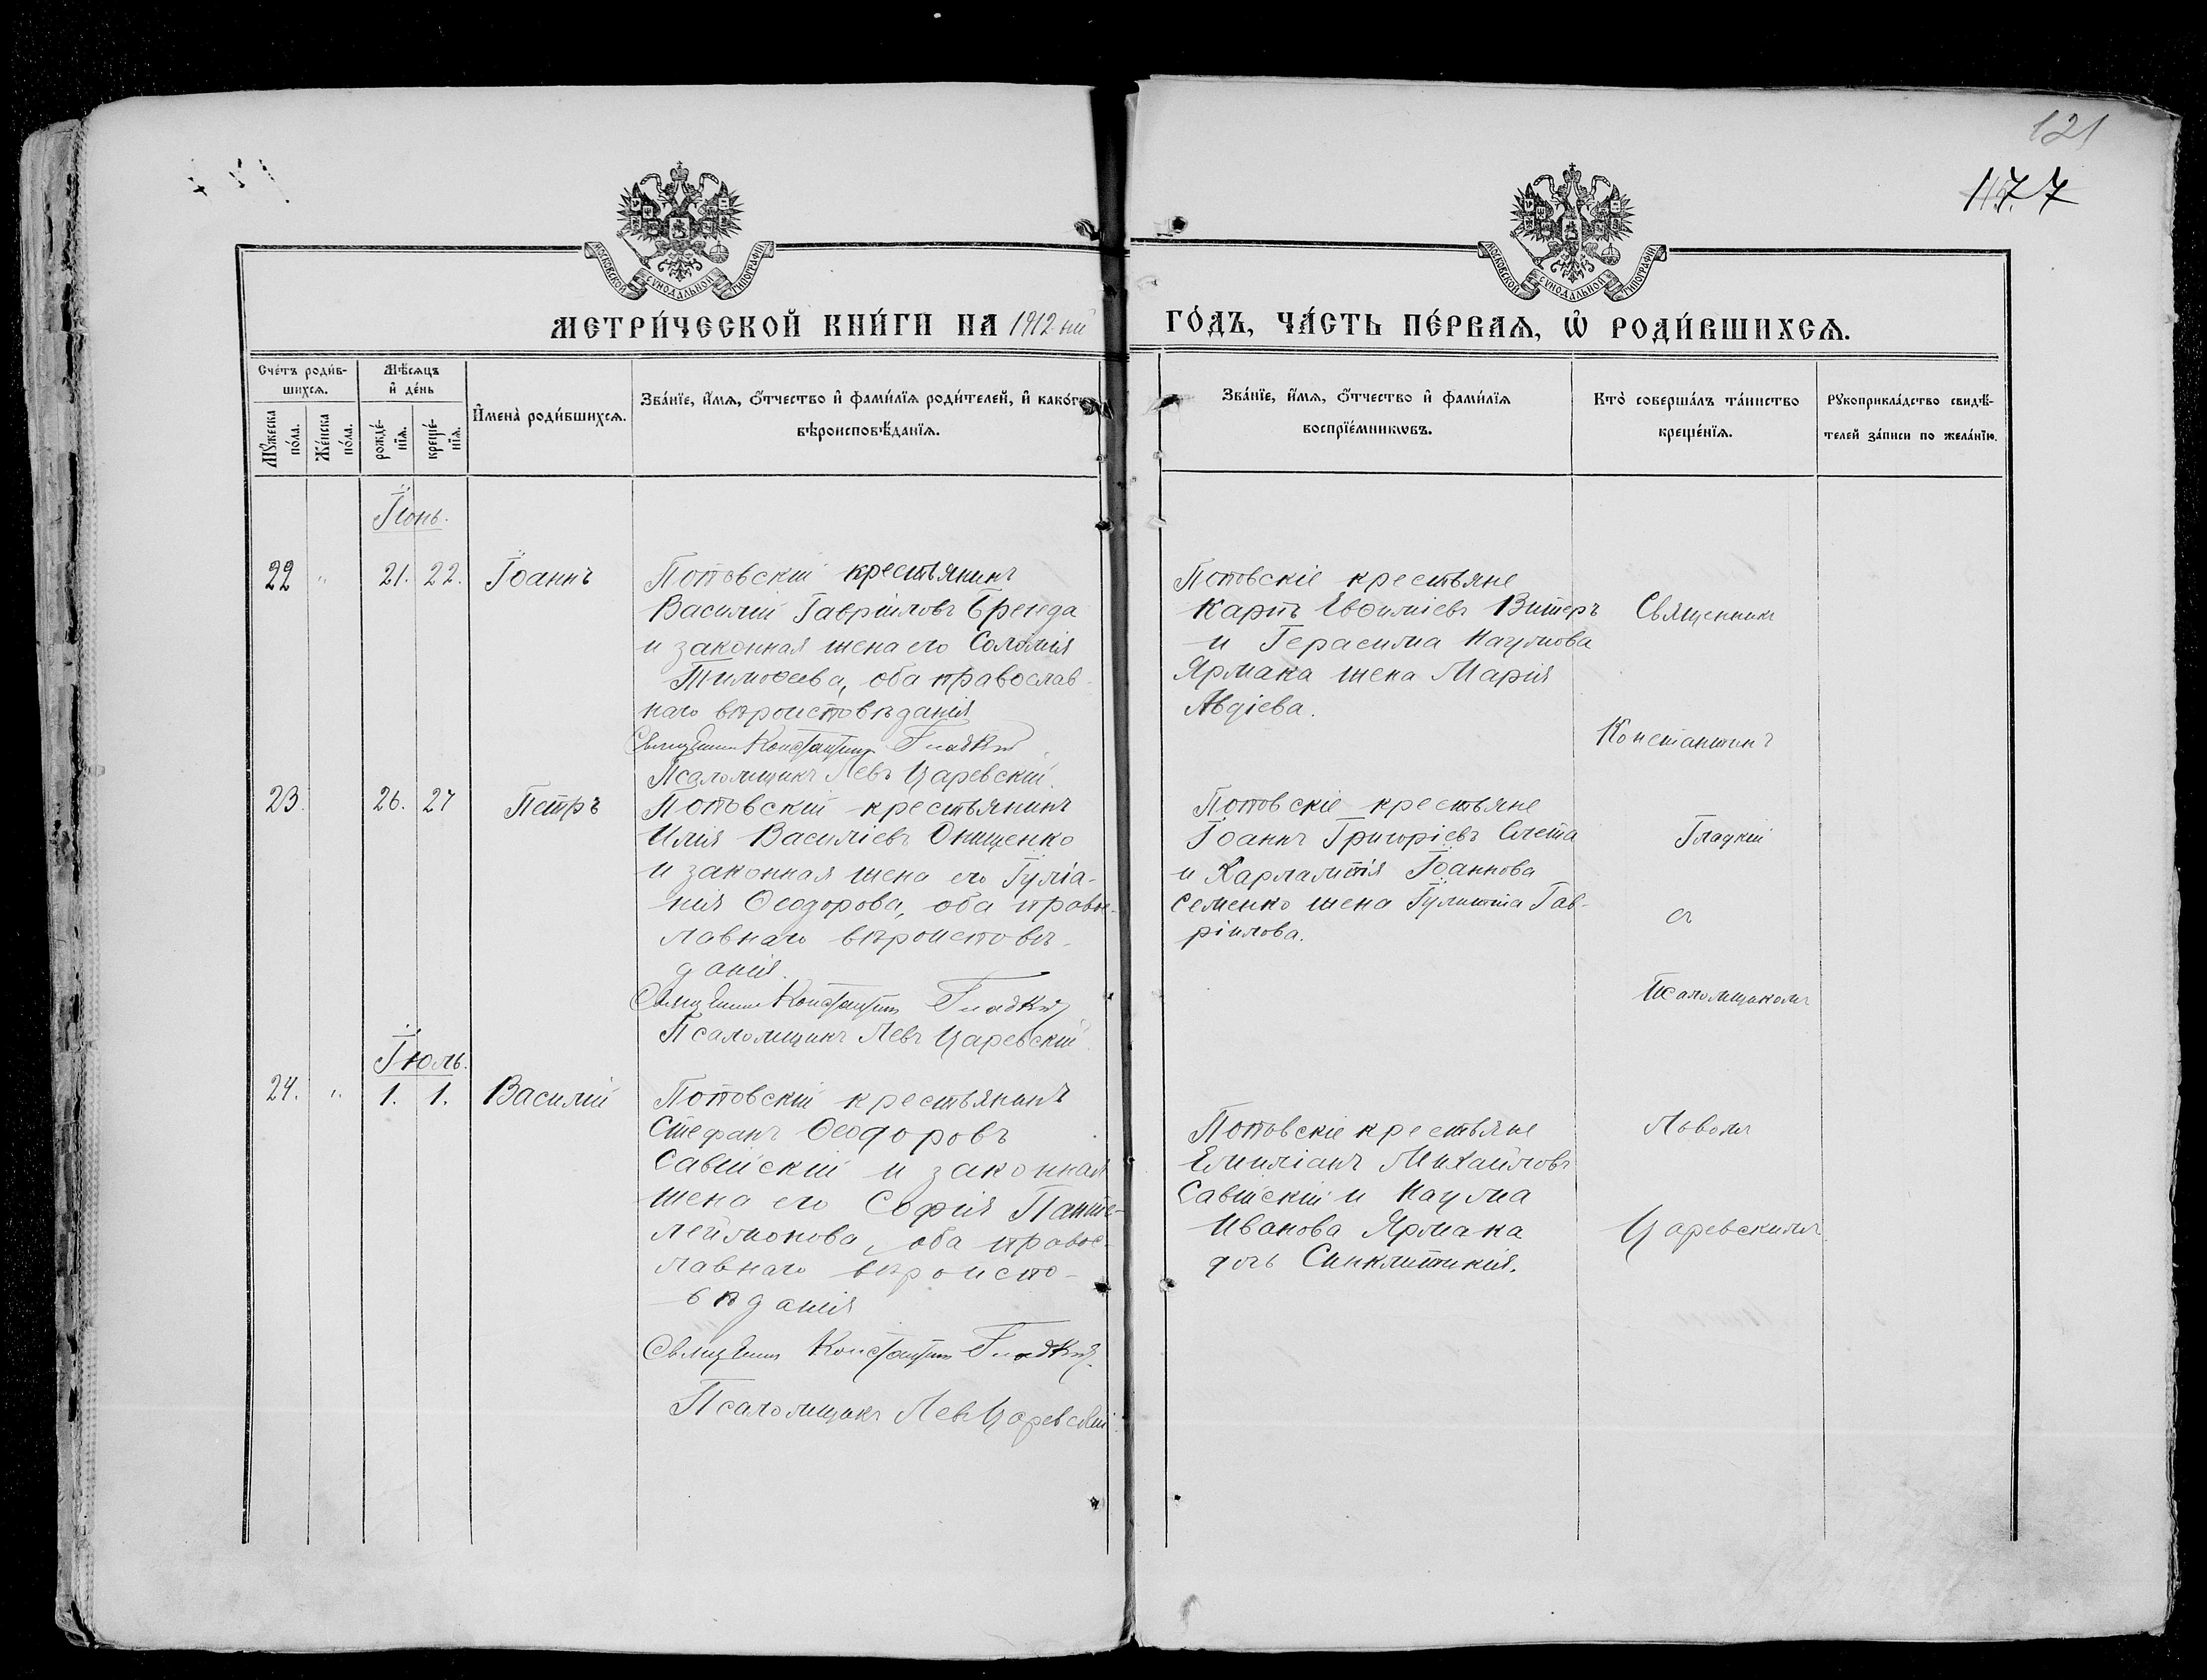 121
117. 7
МОСКОВСКОЙ СѴНОДАЛЬНОЙ ТИПОГРАФІИ
МОСКОВСКОЙ СѴНОДАЛЬНОЙ ТИПОГРАФІИ
МЕТРИ́ЧЕСКОЙ КНИ́ГИ НА 1912-ый
ГО́ДЪ, ЧА́СТЬ ПЕ́РВАѦ, Ѡ҆ РОДИ́ВШИХСѦ.
Сче́тъ роди́в-
шихсѧ.
Мѣ́сѧцъ
и҆ де́нь
Мꙋ́жеска
по́ла.
Же́нска
по́ла.
рожде́-
нїѧ.
креще́-
нїѧ.
И҆мена̀ роди́вшихсѧ.
Зва́нїе, и҆́мѧ, ѻ҆́тчество и҆ фами́лїѧ роди́телей, и҆ како́гѡ
вѣроисповѣ́данїѧ.
Зва́нїе, и҆́мѧ, ѻ҆́тчество и҆ фами́лїѧ
воспрїе́мникѡвъ.
Кто̀ соверша́лъ та́инство
креще́нїѧ.
Рꙋкоприкла́дство свидѣ́-
телей за́писи по жела́нїю.
Іюнь.
22 " 21. 22. Іоаннъ
Поповскій крестьянинъ
Василій Гавріиловъ Бренда
и законная жена его Соломія
Тимоѳеева, оба православ-
наго вѣроисповѣданія
Священникъ Константинъ Гладкій
Псаломщикъ Левъ Царевскій.
Поповскіе крестьяне
Карпъ Евѳиміевъ Витеръ
и Герасима Наумова
Ярмака жена Марія
Авдіева.
Священникъ
Константинъ
23. 26. 27 Петръ
Поповскій крестьянинъ
Илія Василіевъ Онищенко
и законная жена его Іуліа-
нія Ѳеодорова, оба право-
лавнаго вѣроисповѣ-
данія.
Священникъ Константинъ Гладкій
Псаломщикъ Левъ Царевскій
Поповскіе крестьяне
Іоаннъ Григоріевъ Слета
и Харлампія Іоаннова
Семенко жена Іулитта Гав-
ріилова.
Гладкій
съ
Псаломщикомъ
Іюль.
24. " 1. 1. Василій
Поповскій крестьянинъ
Стефанъ Ѳеодоровъ
Савійскій и законная
жена его Софія Панте-
леймонова, оба правос-
лавнаго вѣроиспо-
вѣданія
Священникъ Константинъ Гладкій.
Псаломщикъ Левъ Царевскій
Поповскіе крестьяне
Емиліанъ Михайловъ
Савійскій и Наума
Иванова Ярмака
дочь Синклитикія.
Львомъ
Царевскимъ